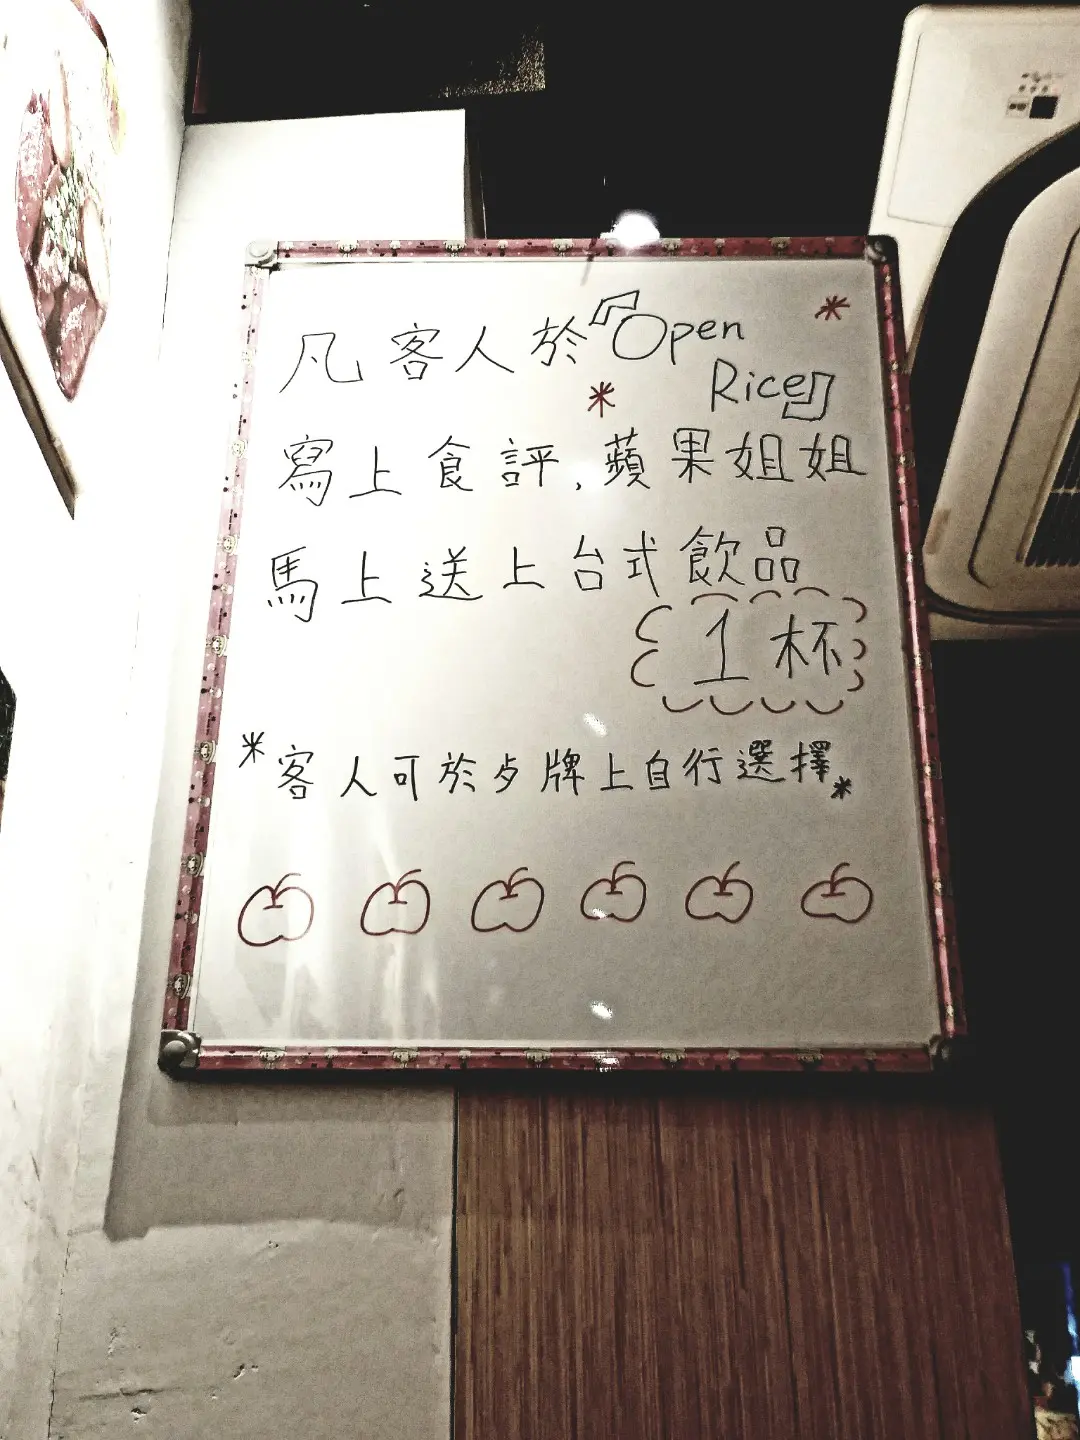 凡客人於『Open
Rice』
寫上食評，蘋果姐姐
馬上送上台式飲品
1杯
*客人可於歺牌上自行選擇*